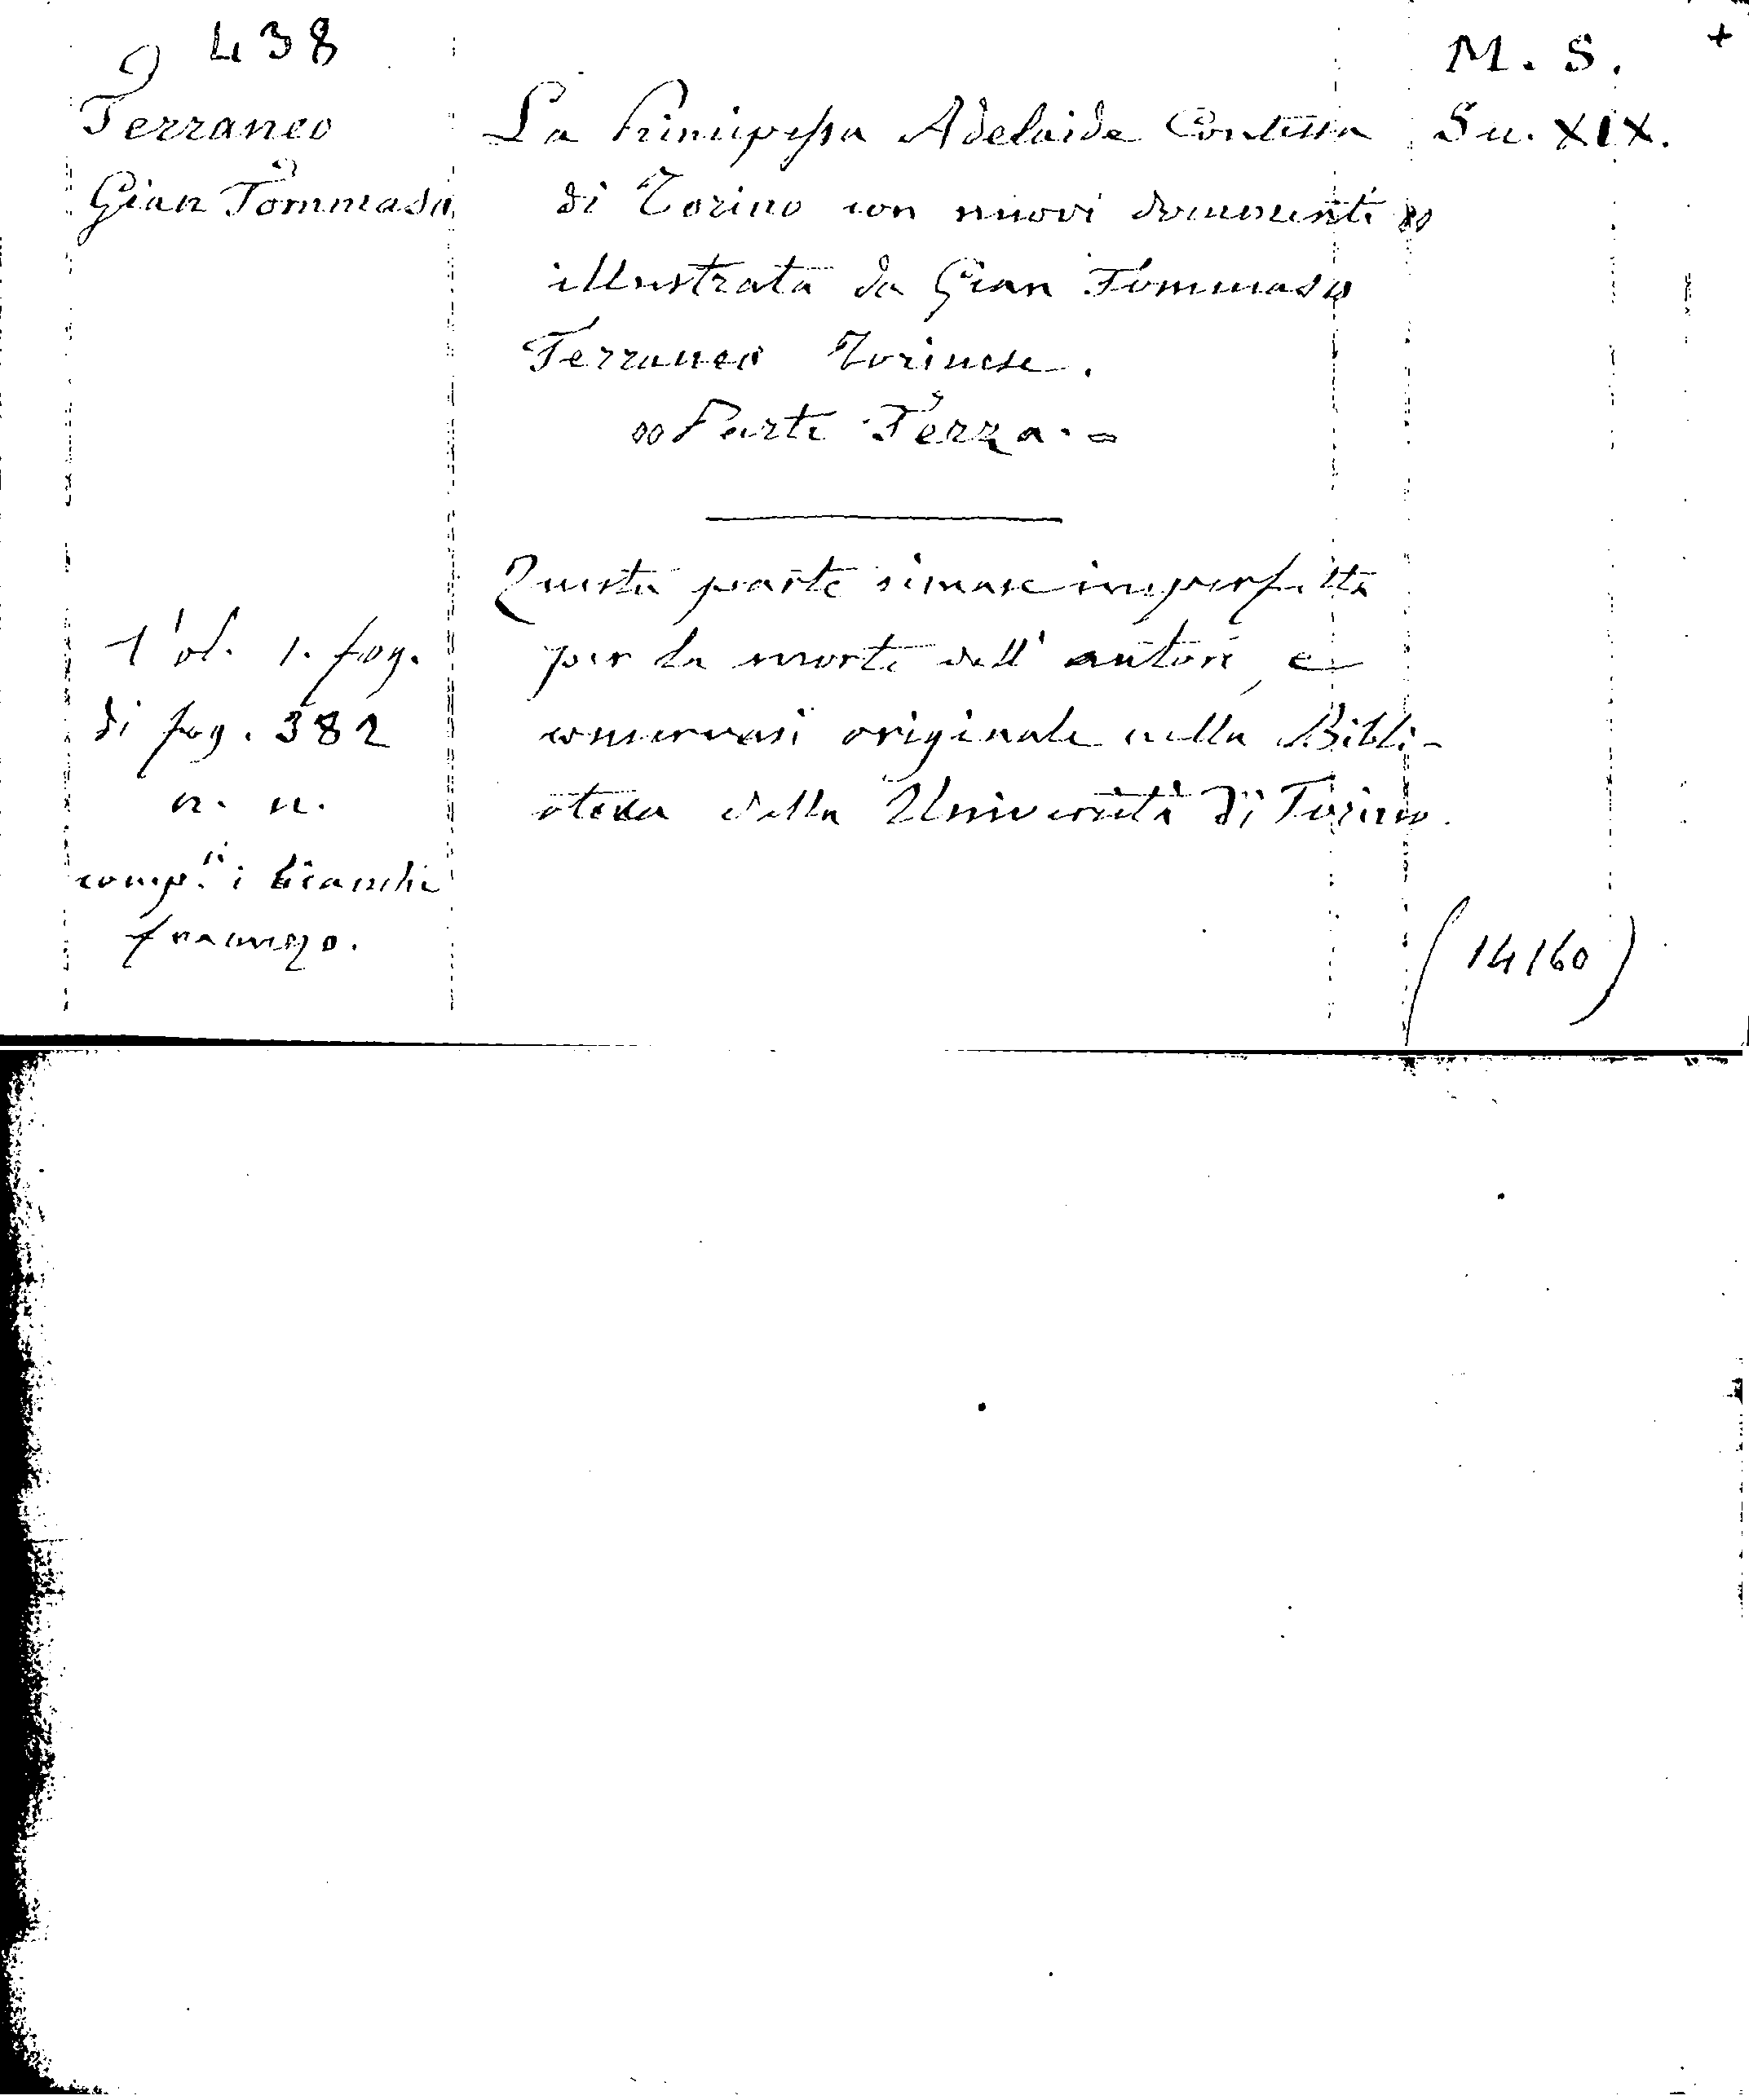 438
M. S. +
Terraneo
Gian Tommaso
La Principessa Adelaide Contessa
di Torino con nuovi documenti
illustrata da Gian Tommaso
Terraneo Torinese.
Parte Terza. =
Sec. XIX.
Questa parte rimase imperfetta
per la morte dell' autore, e
conservasi originale nella Bibli-
oteca della Università di Torino.
Vol. 1. fog.
di fog. 382
n. n.
comp.ⁱ i bianchi
framezo.
(14160)